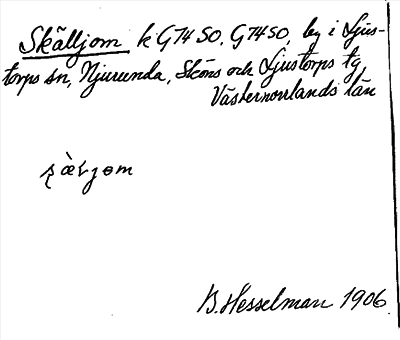 Skälljom k G74 SO, G74 SO, by i Ljus-
torps sn, Njurunda, Sköns och Ljustorps tg,
Västernorrlands län
B. Hesselman 1906